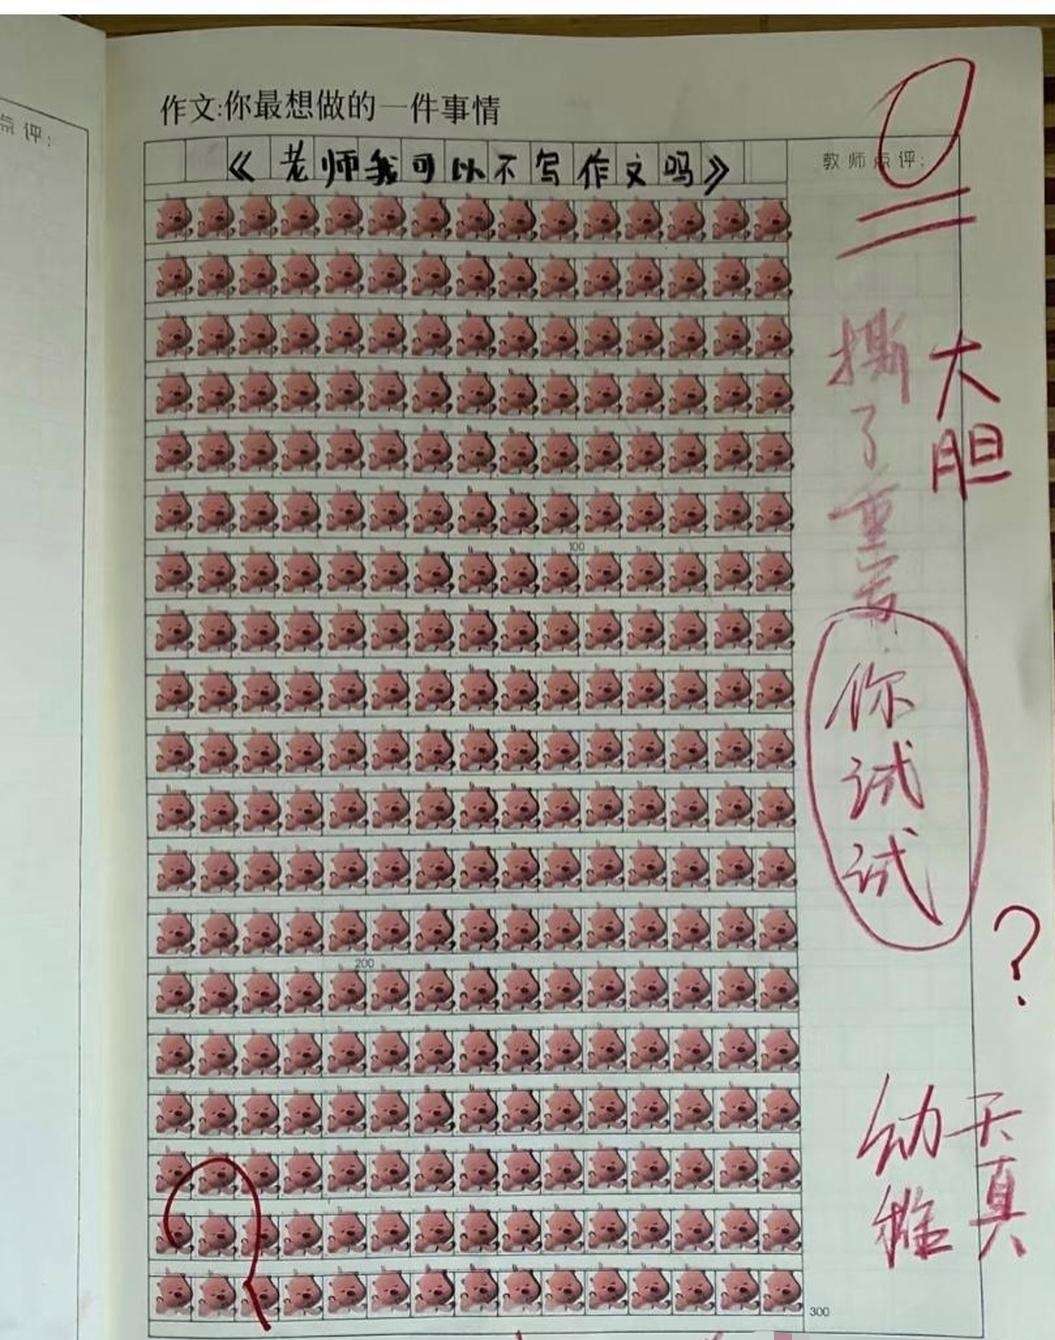 点评:
作文:你最想做的一件事情
《老师我可以不写作文吗》
教师点评:
0
撕了重写
大胆
你试试
?
幼稚
天真
100
200
300